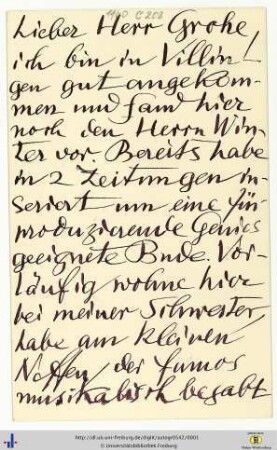 Lieber Herr Grohe,
ich bin in Villin-
gen gut angekom-
men und fand hier
noch den Herrn Win-
ter vor. Bereits habe
in 2 Zeitungen in-
seriert um eine für
produzierende Genies
geeignete Bude. Vor-
läufig wohne hier
bei meiner Schwester,
habe am kleinen
Neffen, der famos
musikalisch begabt
http://dl.ub.uni-freiburg.de/diglit/autogr0542/0001
© Universitätsbibliothek Freiburg